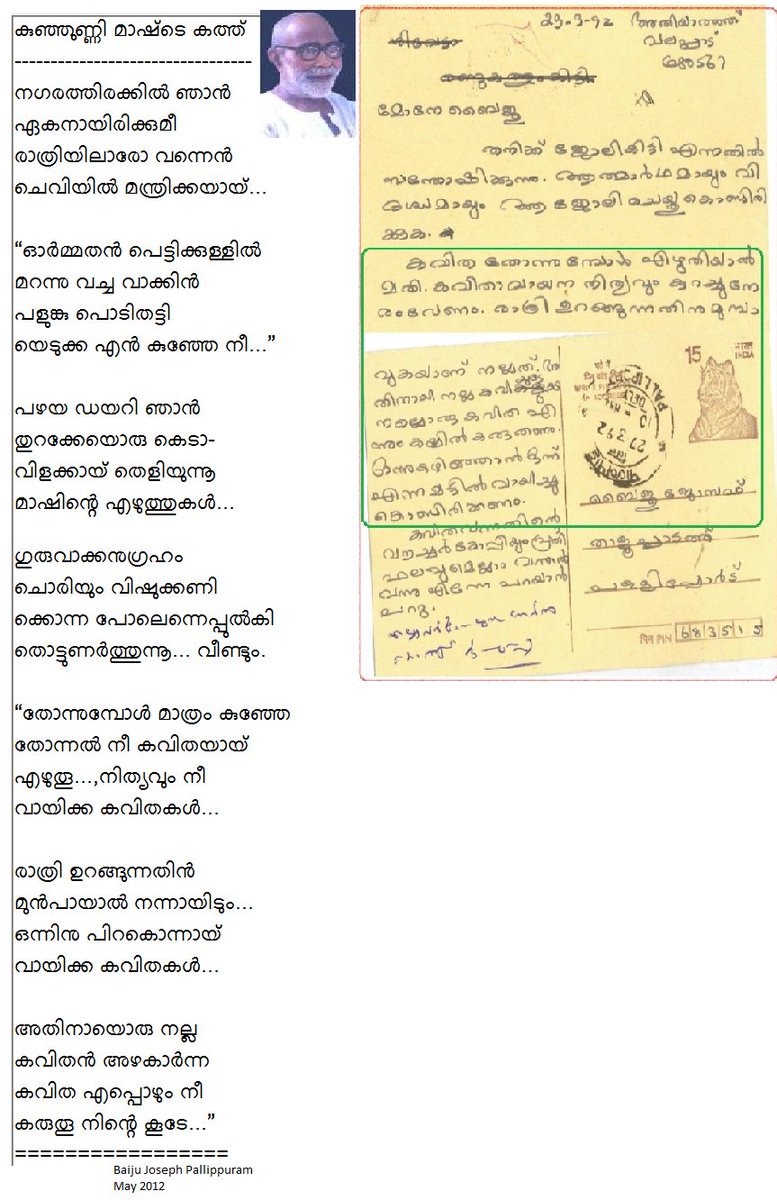 കുഞ്ഞുണ്ണി മാഷ്ടെ കത്ത്
---------------------------------
നഗരത്തിരക്കിൽ ഞാൻ
ഏകനായിരിക്കുമീ
രാത്രിയിലാരോ വന്നെൻ
ചെവിയിൽ മന്ത്രിക്കയായ്...
“ഓർമ്മതൻ പെട്ടിക്കുള്ളിൽ
മറന്നു വച്ച വാക്കിൻ
പളുങ്കു പൊടിതട്ടി
യെടുക്ക എൻ കുഞ്ഞേ നീ...”
പഴയ ഡയറി ഞാൻ
തുറക്കേയൊരു കെടാ-
വിളക്കായ് തെളിയുന്നൂ
മാഷിന്റെ എഴുത്തുകൾ...
ഗുരുവാക്കനുഗ്രഹം
ചൊരിയും വിഷുക്കണി
ക്കൊന്ന പോലെന്നെപ്പുൽകി
തൊട്ടുണർത്തുന്നൂ... വീണ്ടും.
“തോന്നുമ്പോൾ മാത്രം കുഞ്ഞേ
തോന്നൽ നീ കവിതയായ്
എഴുതൂ...,നിത്യവും നീ
വായിക്ക കവിതകൾ...
രാത്രി ഉറങ്ങുന്നതിൻ
മുൻപായാൽ നന്നായിടും...
ഒന്നിനു പിറകൊന്നായ്
വായിക്ക കവിതകൾ...
അതിനായൊരു നല്ല
കവിതൻ അഴകാർന്ന
കവിത എപ്പൊഴും നീ
കരുതൂ നിന്റെ കൂടേ...”
==================
Baiju Joseph Pallippuram
May 2012
23-3-92 അതിയാരത്ത്
വലപ്പാട്
680567
മോനേ ബൈജൂ
തനിക്ക് ജോലികിട്ടി എന്നതിൽ
സന്തോഷിക്കുന്നു. ആത്മാർഥമായും വി
ദഗ്ധമായും ആ ജോലി ചെയ്തുകൊണ്ടിരി
ക്കുക.
കവിത തോന്നുമ്പോൾ എഴുതിയാൽ
മതി. കവിതാവായന നിത്യവും കുറച്ചുനേ
രംവേണം. രാത്രി ഉറങ്ങുന്നതിനുമുമ്പാ
വുകയാണ് നല്ലത്. അ
തിനായി നല്ല
നല്ലൊരു കവിത എ
ന്നും കയ്യിൽ കരുതണം.
ഒന്നുകഴിഞ്ഞാൽ ഒന്ന്
എന്ന മട്ടിൽ വായിച്ചു
കൊണ്ടിരിക്കണം.
15 भारत
INDIA
27.3.92
ബൈജൂ ജോസഫ്
താളൂപ്പാടത്ത്
പള്ളിപ്പോർട്ട്
पिन PIN 683515